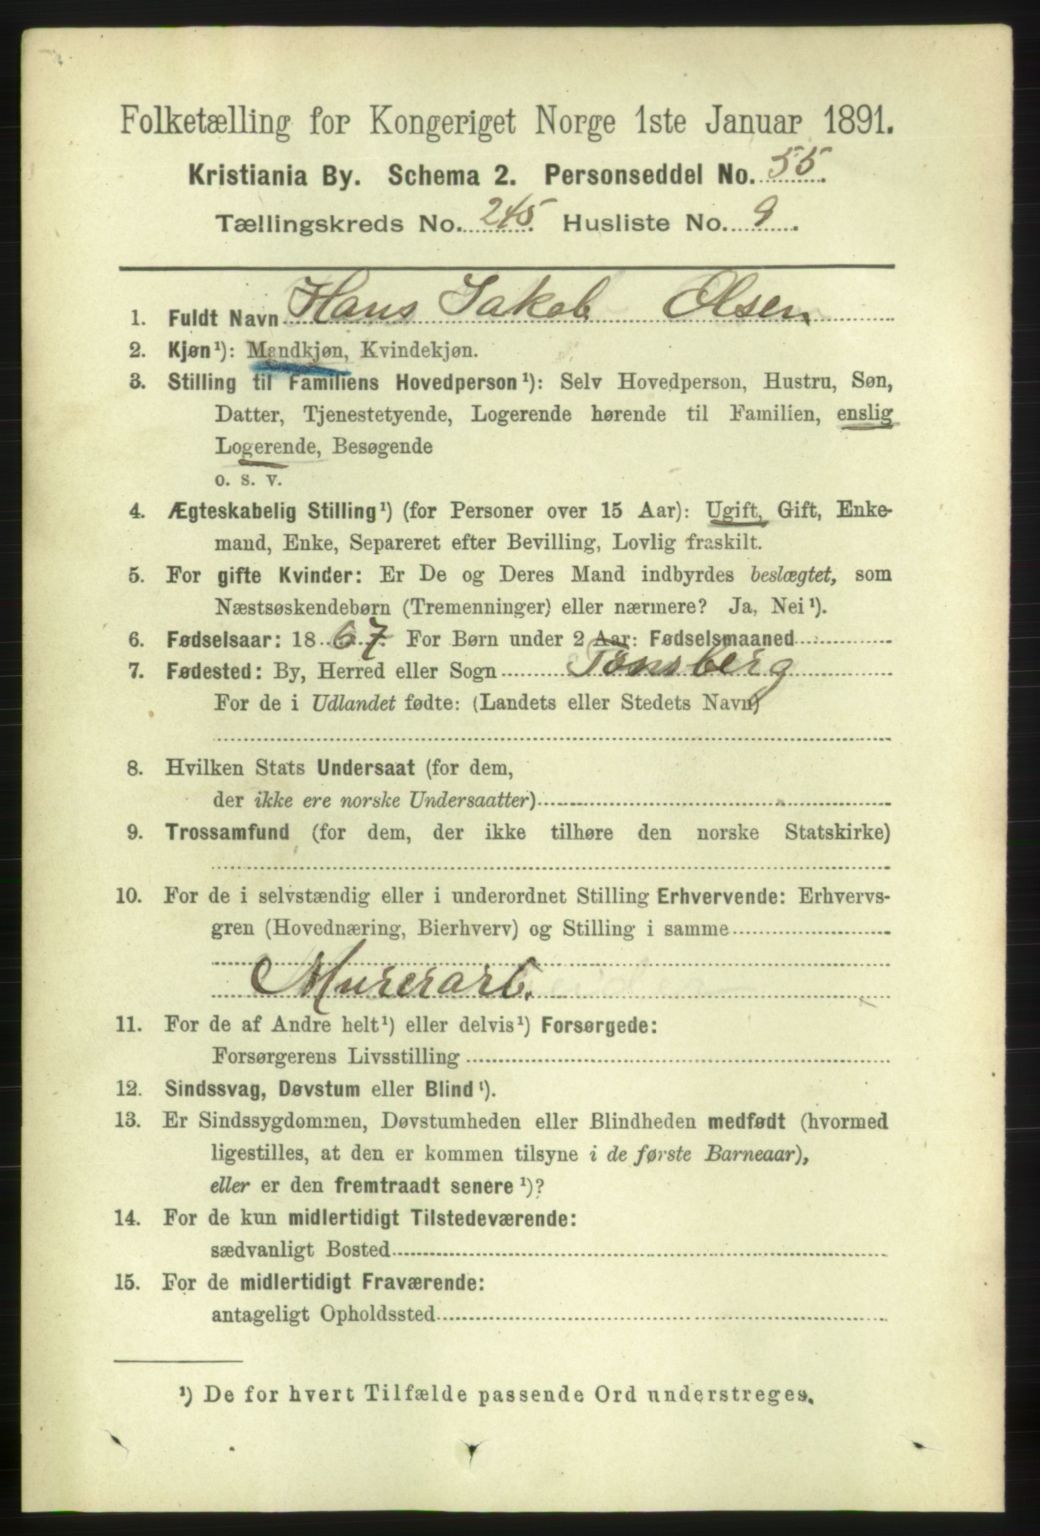 Folketælling for Kongeriget Norge 1ste Januar 1891.
Kristiania By. Schema 2. Personseddel No. 55.
Tællingskreds No. 245. Husliste No. 9.
1. Fuldt Navn Hans Jakob Olsen
2. Kjøn¹): Mandkjøn, Kvindekjøn.
3. Stilling til Familiens Hovedperson¹): Selv Hovedperson, Hustru, Søn,
Datter, Tjenestetyende, Logerende hørende til Familien, enslig
Logerende, Besøgende
o. s. v.
4. Ægteskabelig Stilling¹) (for Personer over 15 Aar): Ugift, Gift, Enke-
mand, Enke, Separeret efter Bevilling, Lovlig fraskilt.
5. For gifte Kvinder: Er De og Deres Mand indbyrdes beslægtet, som
Næstsøskendebørn (Tremenninger) eller nærmere? Ja, Nei¹).
6. Fødselsaar: 1867. For Børn under 2 Aar: Fødselsmaaned
7. Fødested: By, Herred eller Sogn Tønsberg
For de i Udlandet fødte: (Landets eller Stedets Navn)
8. Hvilken Stats Undersaat (for dem,
der ikke ere norske Undersaatter)
9. Trossamfund (for dem, der ikke tilhøre den norske Statskirke)
10. For de i selvstændig eller i underordnet Stilling Erhvervende: Erhvervs-
gren (Hovednæring, Bierhverv) og Stilling i samme
Murerarb.
11. For de af Andre helt¹) eller delvis¹) Forsørgede:
Forsørgerens Livsstilling
12. Sindssvag, Døvstum eller Blind¹).
13. Er Sindssygdommen, Døvstumheden eller Blindheden medfødt (hvormed
ligestilles, at den er kommen tilsyne i de første Barneaar),
eller er den fremtraadt senere¹)?
14. For de kun midlertidigt Tilstedeværende:
sædvanligt Bosted
15. For de midlertidigt Fraværende:
antageligt Opholdssted
¹) De for hvert Tilfælde passende Ord understreges.